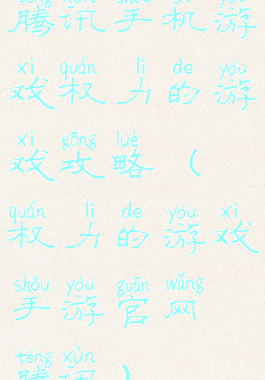 腾讯手机游
xì quán lì de yóu
戏权力的游
xì gōng luè
戏攻略(
quán lì de yóu xì
权力的游戏
shǒu yóu guān wǎng
手游官网
téng xùn
腾讯)